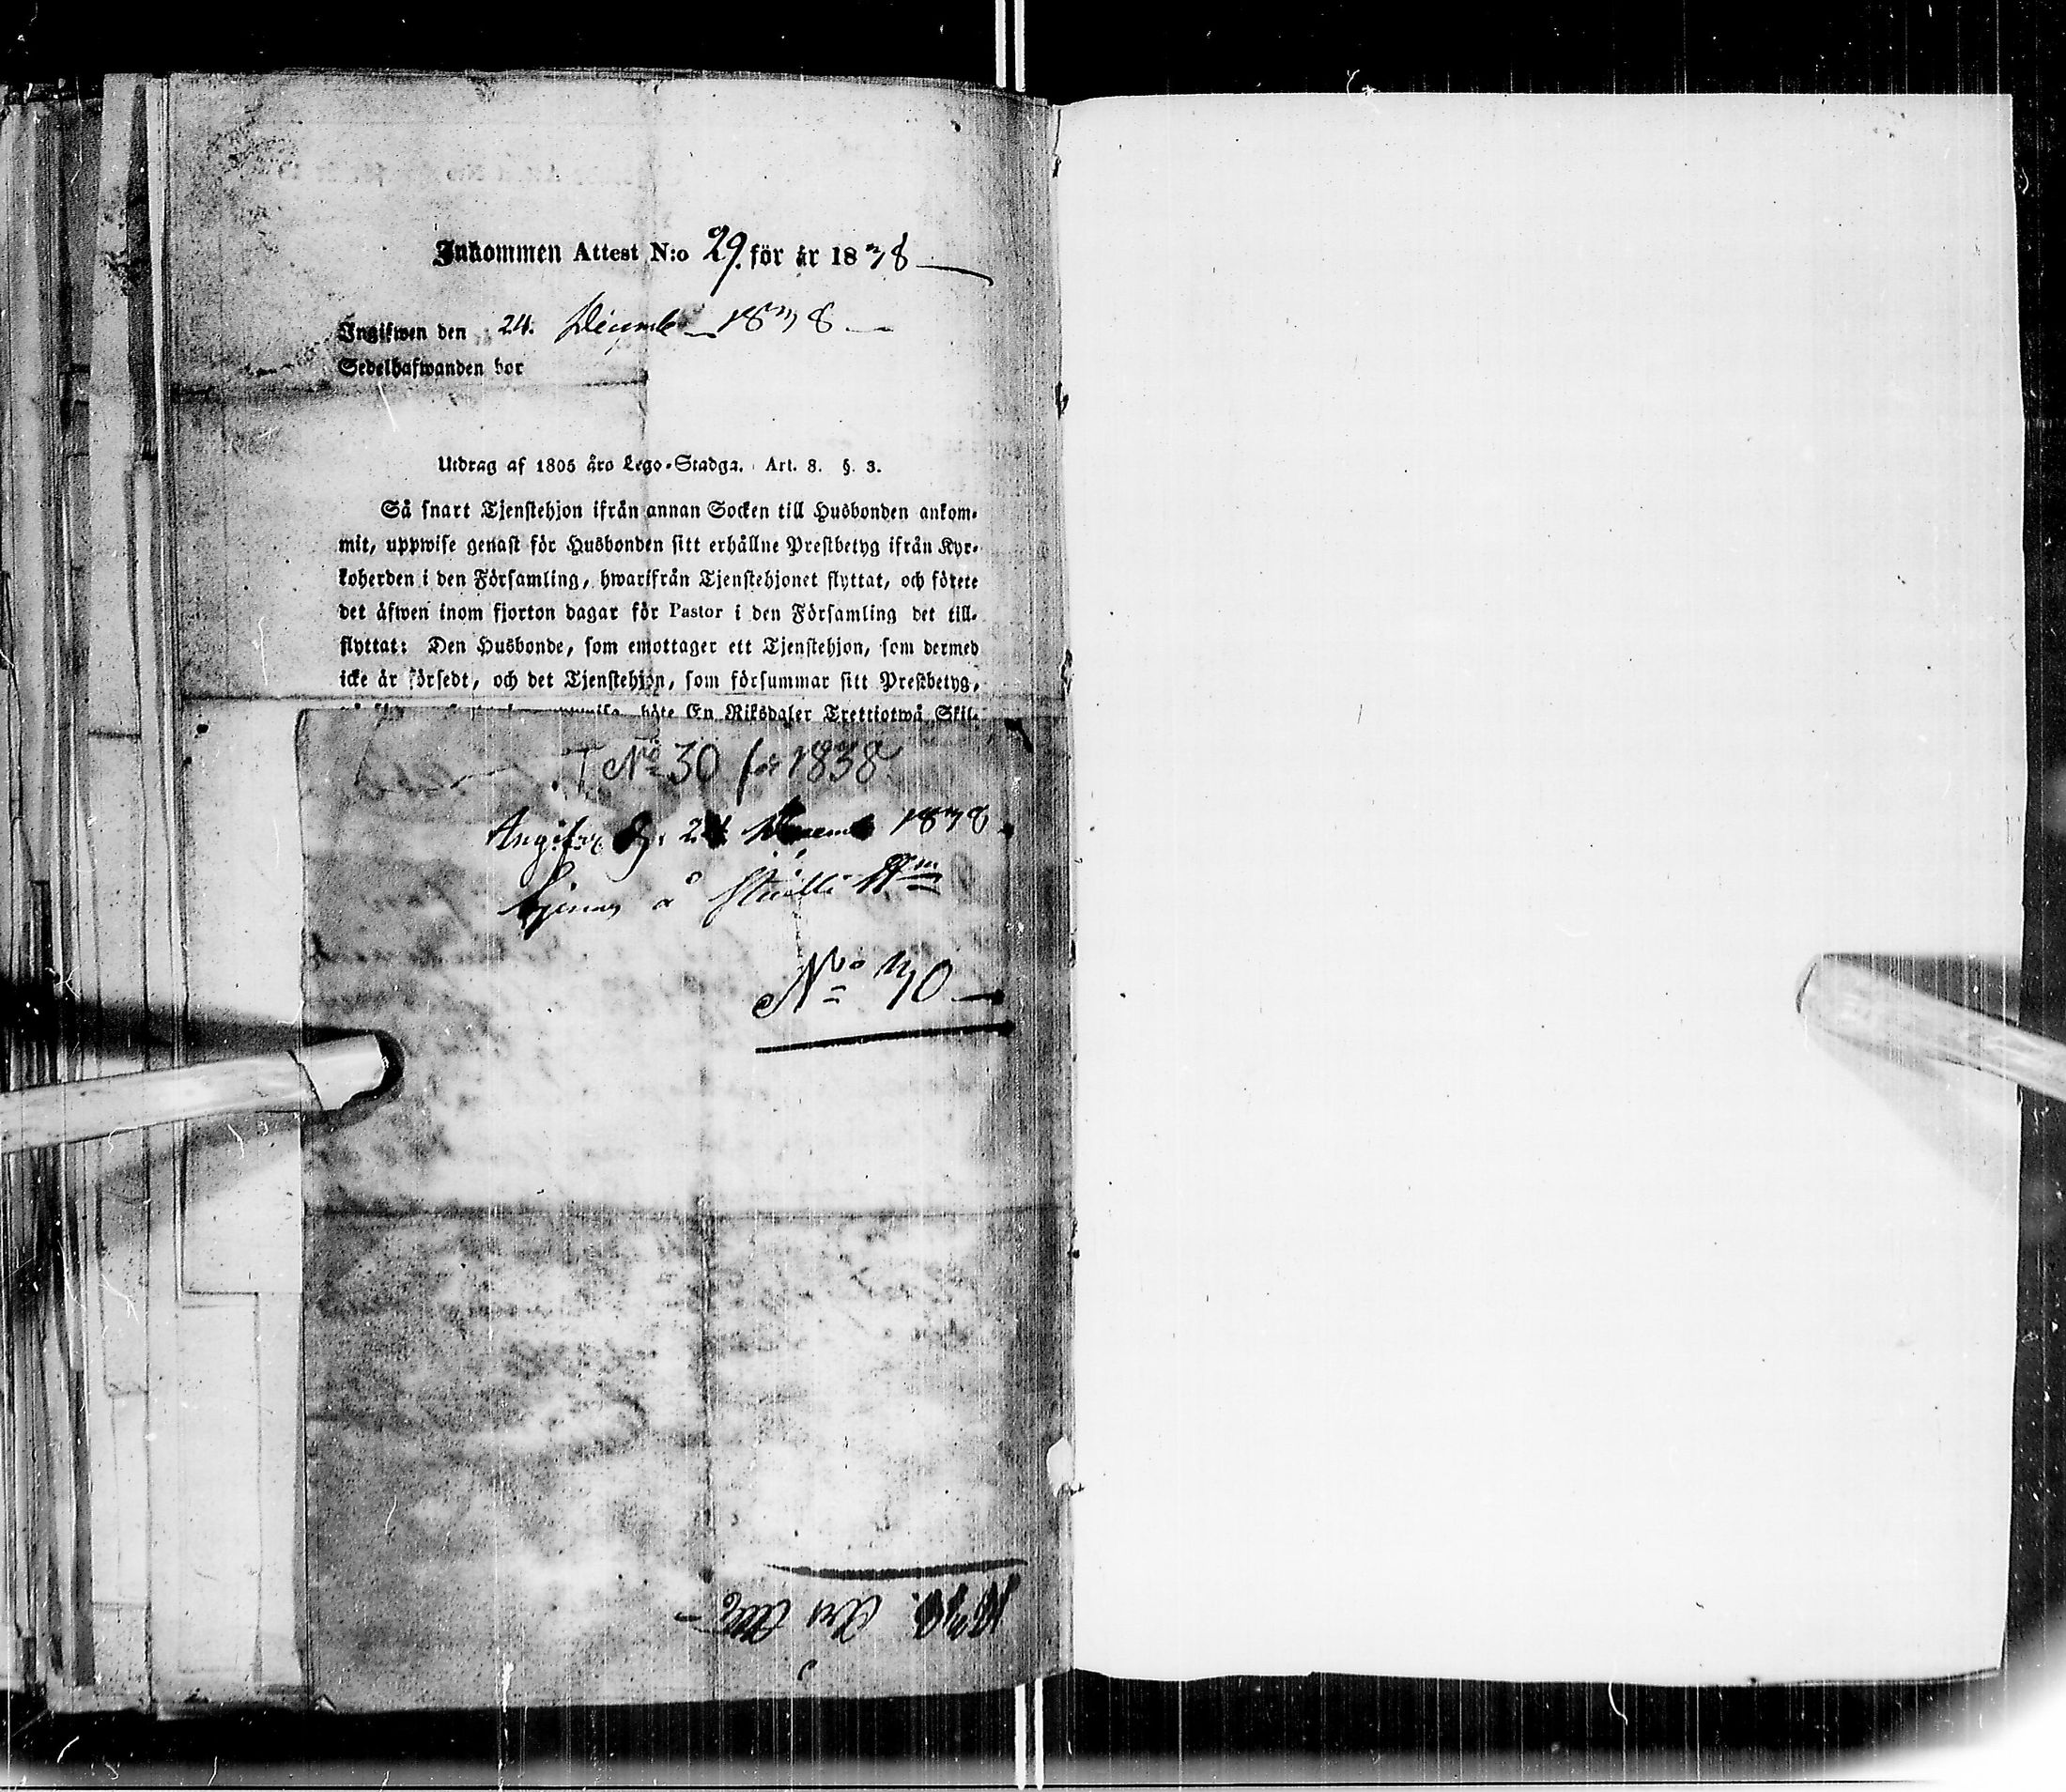 Inkommen Attest N:o 29. för år 1838
Ingifwen den 24. Decemb 1838
Sedelhafwanden bor
Utdrag af 1805 års Lego-Stadga. Art. 8. §. 3.
Så snart Tjenstehjon ifrån annan Socken till Husbonden ankom-
mit, uppwise genast för Husbonden sitt erhållne Prestbetyg ifrån Kyr-
koherden i den Församling, hwarifrån Tjenstehjonet flyttat, och förete
det äfwen inom fjorton dagar för Pastor i den Församling det till-
flyttat: Den Husbonde, som emottager ett Tjenstehjon, som dermed
icke är försedt, och det Tjenstehjon, som försummar sitt Prestbetyg,
böte En Riksdaler Trettiotwå Skil-
No 30 för 1838
d. 24 Decemb 1838
å
No 30